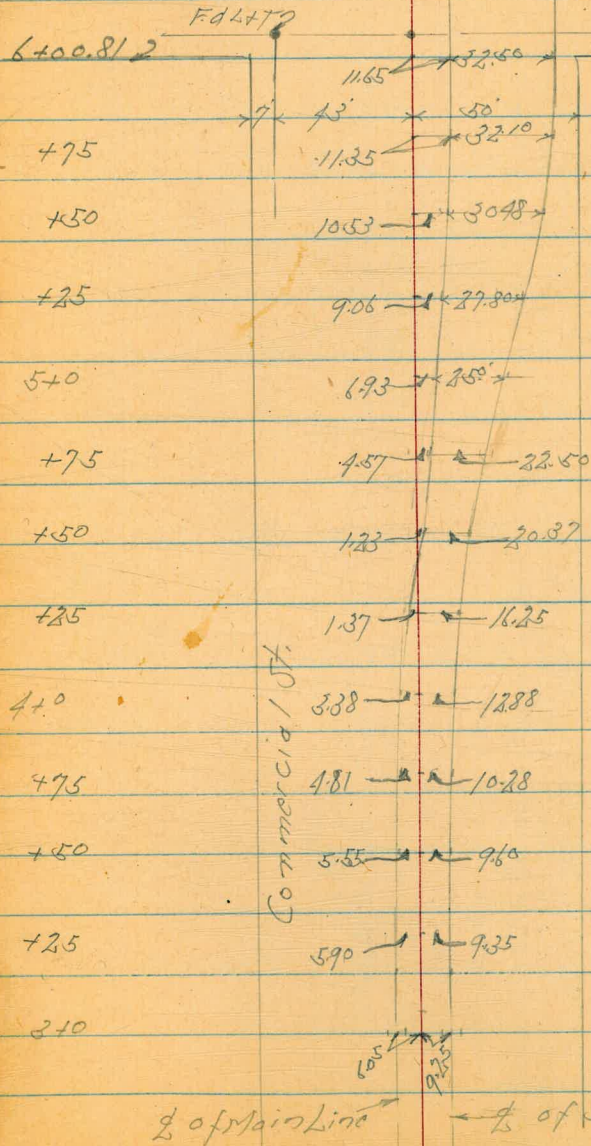 F.d L+T
6+00.81 2
11.65 32.50
7' 43' 50'
+75 11.35 32.10
+50 10.53 30.48
+25 9.06 27.80
5+0 6.93 25.0
+75 4.57 22.50
+50 1.23 20.37
+25 1.37 16.25
4+0 3.38 12.88
+75 4.81 10.28
+50 5.55 9.60
+25 5.90 9.35
3+0
6.05 9.25
Commercial St.
℄ of Main Line
℄ of